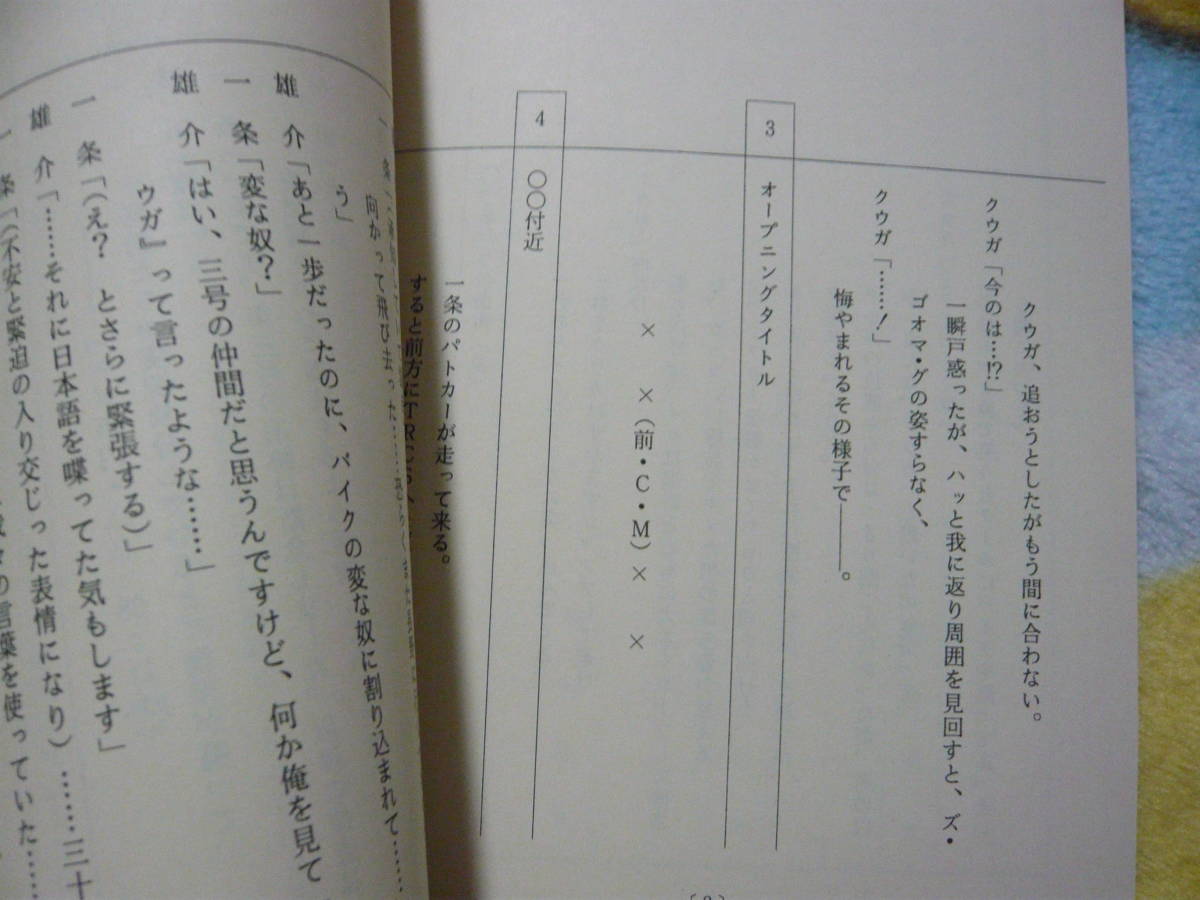 クウガ、追おうとしたがもう間に合わない。
クウガ「今のは…!?」
一瞬戸惑ったが、ハッと我に返り周囲を見回すと、ズ・
ゴオマ・グの姿すらなく、
クウガ「……！」
悔やまれるその様子で――。
3 オープニングタイトル
× ×（前・C・M）× ×
4 〇〇付近
一条のパトカーが走って来る。
すると前方にTRCS
一条「
向かって飛び去った……
う」
雄介「あと一歩だったのに、バイクの変な奴に割り込まれて……
一条「変な奴？」
雄介「はい、三号の仲間だと思うんですけど、何か俺を見て
ウガ』って言ったような……」
一条「（え？　とさらに緊張する）」
雄介「……それに日本語を喋ってた気もします」
一条「（不安と緊迫の入り交じった表情になり）……三十
の言葉を使っていた……